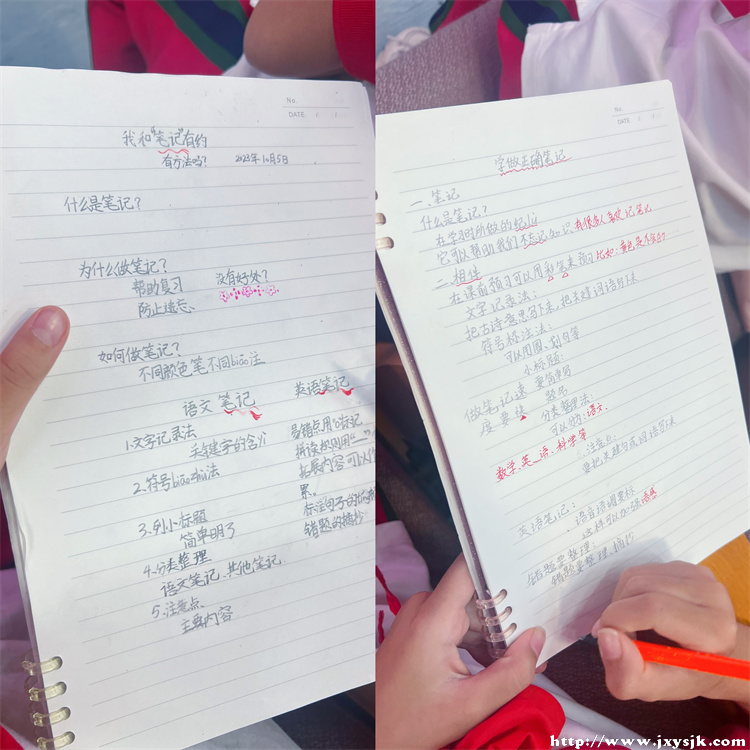 No.
DATE
我和"笔记"有约
有方法吗? 2023年10月5日
什么是笔记?
为什么做笔记?
帮助复习 没有好处?
防止遗忘.
如何做笔记?
不同颜色笔不同biāo注
语文笔记
1.文字记录法
关键字的含义
2.符号biāo注法
3.列小标题
简单明了
4.分类整理
语文笔记.其他笔记
5.注意点
主要内容
英语笔记
易错点用
拼读规则用
拓展内容可以
累.
标注句子的
错题的摘抄
No.
DATE
学做正确笔记
一.笔记
什么是笔记?
在学习时所做的纪lù
它可以帮助我们不忘记知识
在课前预习可以用彩笔来预习比如:
文字记录法:
把古诗意思写下来,把关键词语写下来
符号标注法:
可以用圈、划句等
小标题:
做笔记速度要快
要简单明
题号
分类整理法
可以分为:语文.
数学.英语.科学等
注意点:
英语笔记:
错题要整理:
错题要整理.摘抄
http://www.jxysjk.com